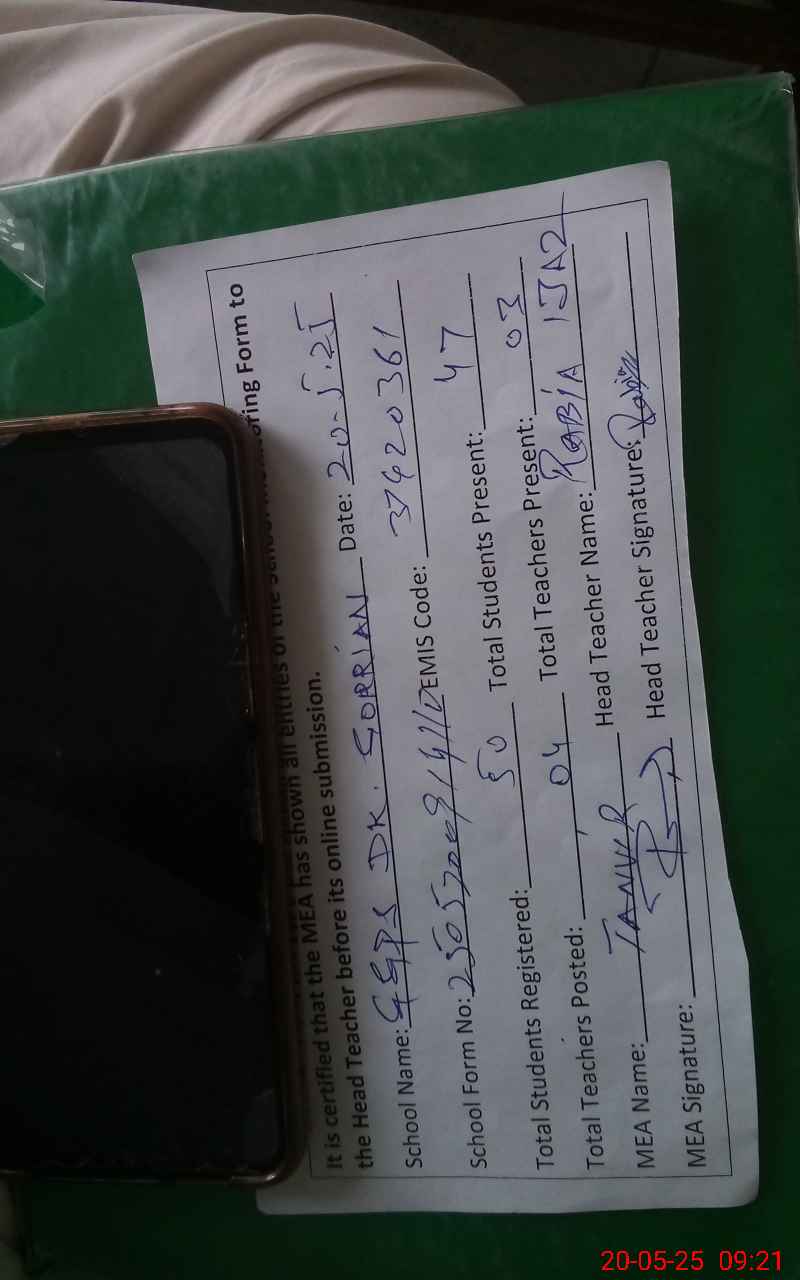 It is certified that the MEA has shown all entries of the School Monitoring Form to
the Head Teacher before its online submission.
School Name: GGPS DK. GORRIAN Date: 20-5.25
School Form No: EMIS Code: 37420361
Total Students Registered: 50 Total Students Present: 47
Total Teachers Posted: 04 Total Teachers Present: 03
MEA Name: TANVIR Head Teacher Name: RABIA IJAZ
MEA Signature: Head Teacher Signature: Rabia
20-05-25 09:21